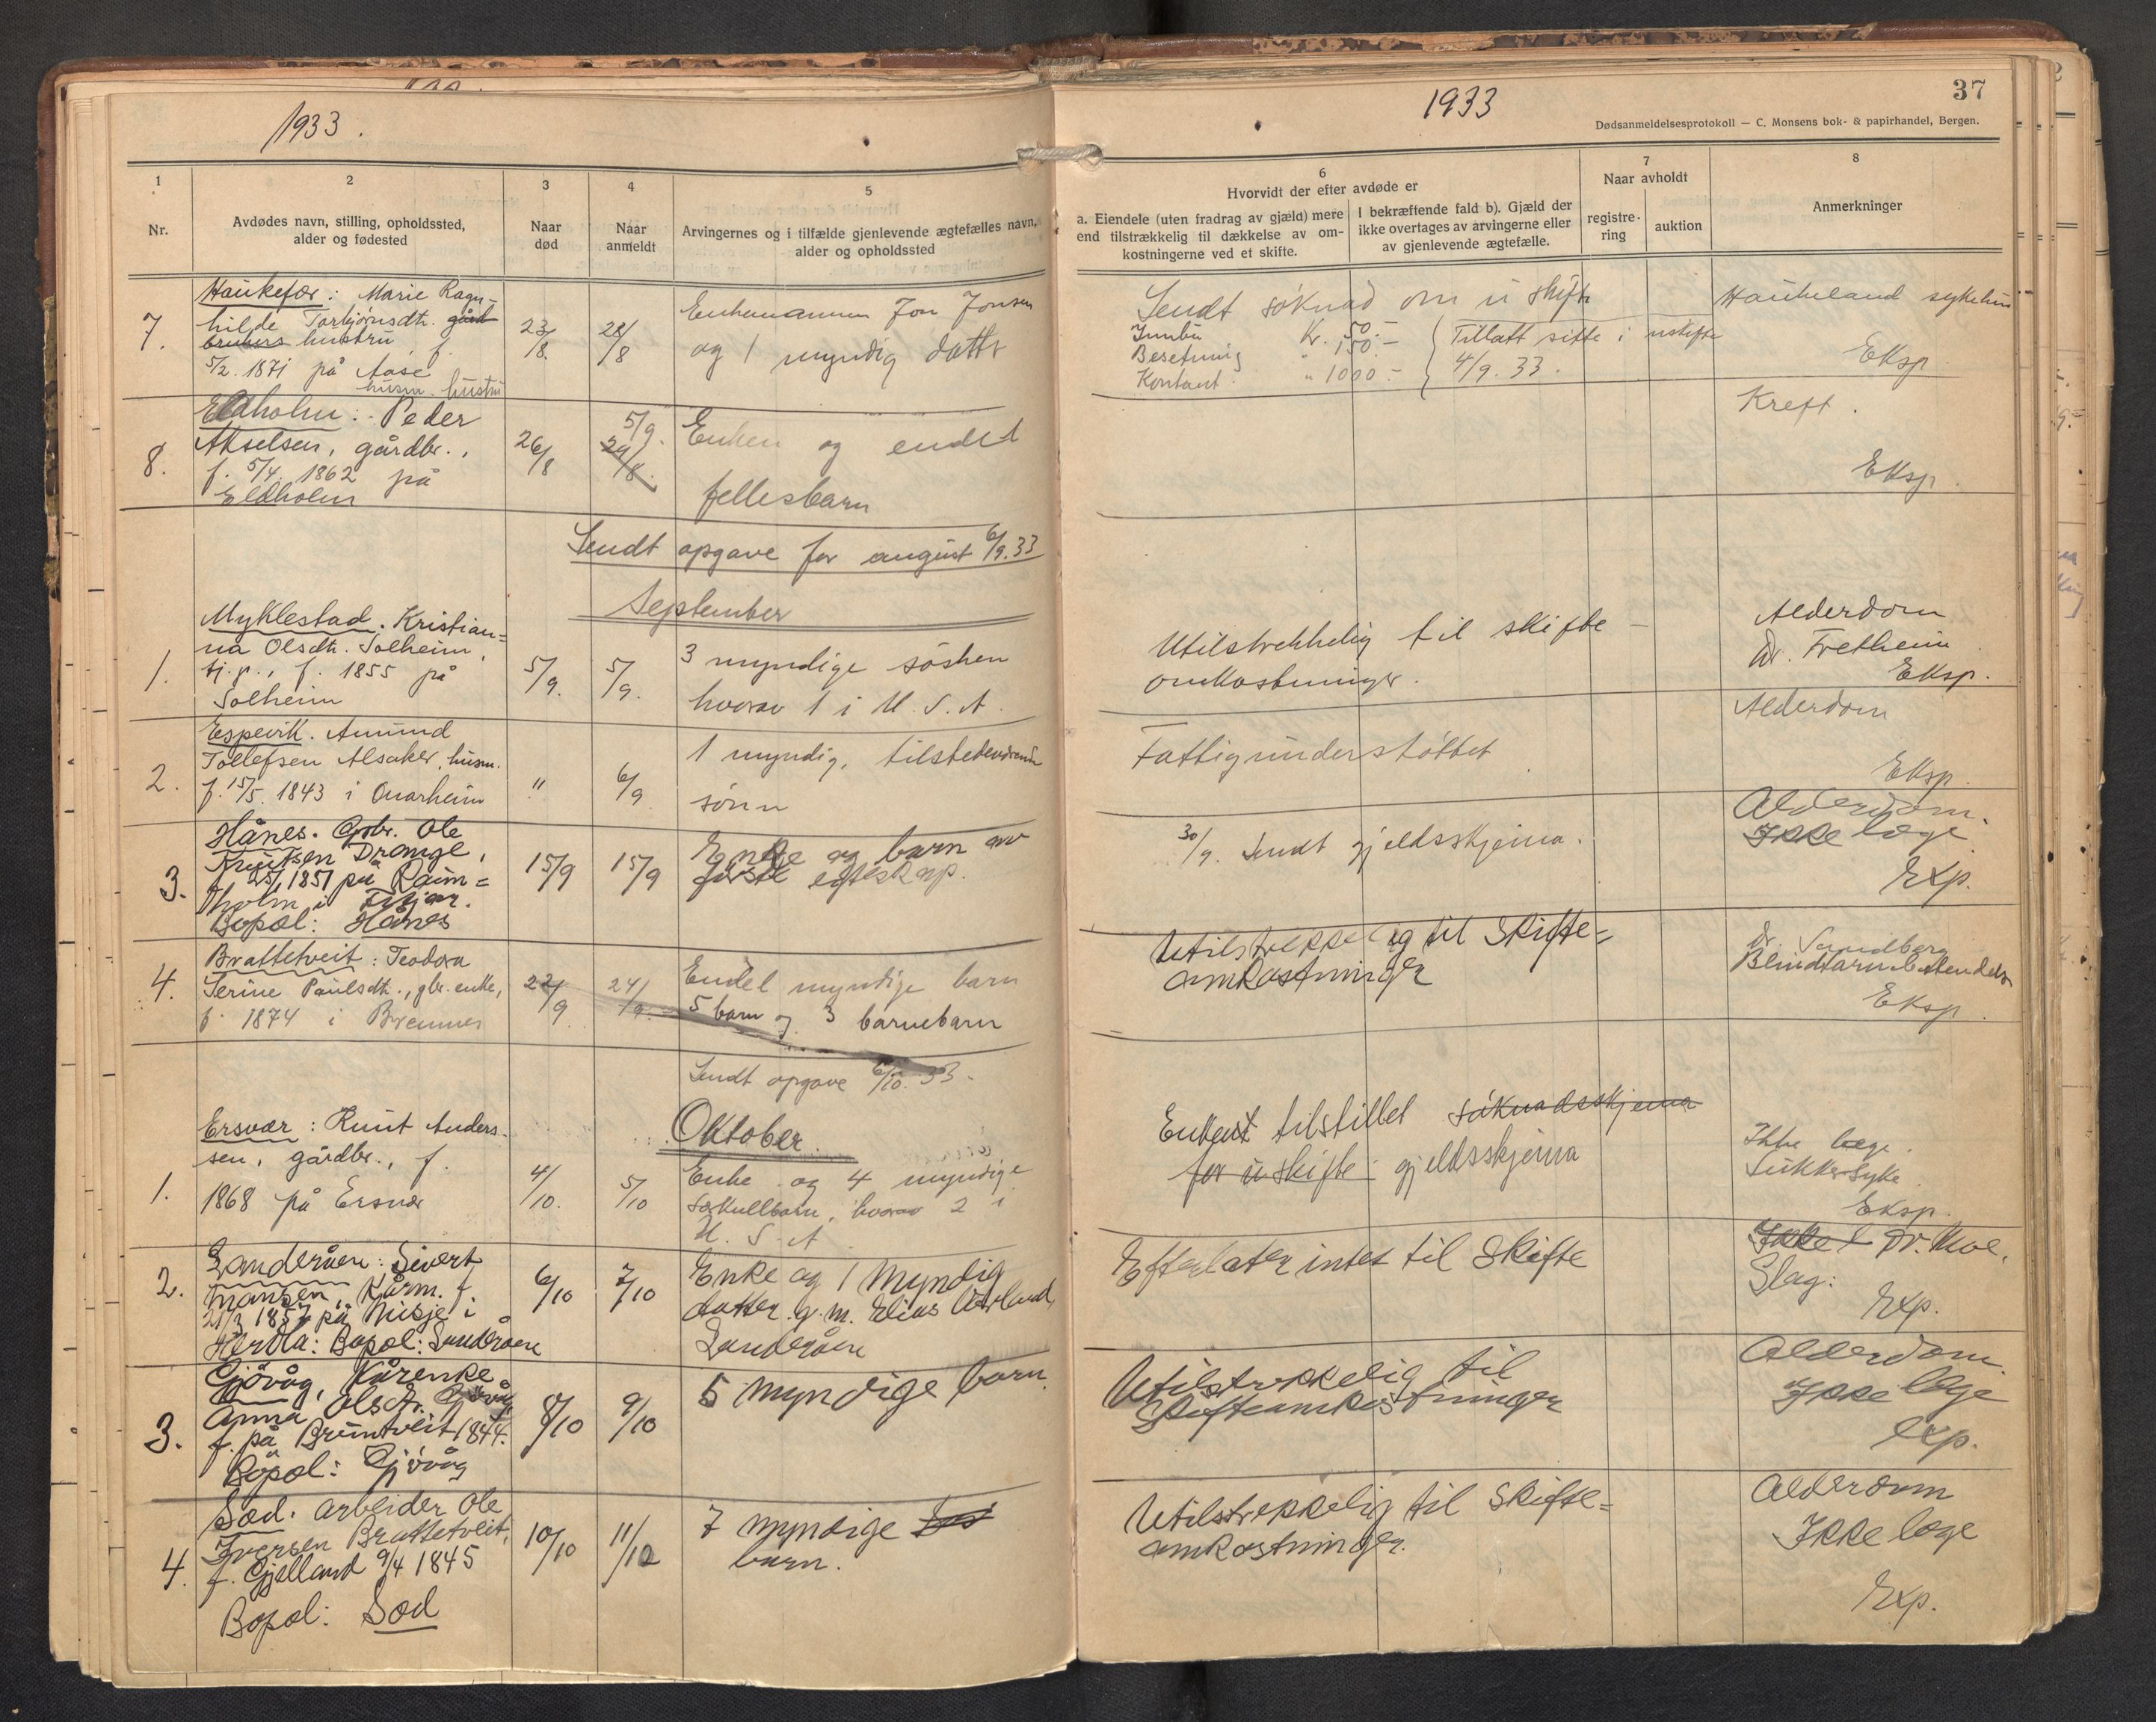 1933.
1
2
3
4
5
Nr.
Avdødes navn, stilling, opholdssted,
alder og fødested
Naar
død
Naar
anmeldt
Arvingernes og i tilfælde gjenlevende ægtefælles navn,
alder og opholdssted
7.
Haukefær: Marie Ragn-
hilde Torbjørnsdtr. gård
brukers hustru, f.
5/2. 1871 på Aase
husm. hustru
23/8.
28/8
Enkemannen Jon Jonsen
og 1 myndig datter
8.
Eldholm: Peder
Akselsen, gårdbr.,
f. 5/4. 1862 på
Eldholm
26/8
5/9.
29/8.
Enken og endel
fellesbarn
Sendt opgave for august 6/9.33
September
1.
Myklestad. Kristian-
na Olsdtr. Solheim,
tj.p., f. 1855 på
Solheim
5/9.
5/9.
3 myndige søsken
hvorav 1 i U.S.A.
2.
Espevik. Amund
Tollefsen Alsaker, husm.
f. 15/5. 1843 i Onarheim
"
6/9
1 myndig, tilstedeværende
sønn
3.
Hånes. Gbr. Ole
Knutsen Drange,
1851 på Raim=
holm i Fitjar.
Bopæl: Hånes
15/9
15/9
Enke og barn av
første egteskap.
4.
Brattetveit: Teodora
Serine Paulsdtr., gbr. enke,
f. 1874 i Bremnes
22/9
24/9.
Endel myndige barn
5 barn og 3 barnebarn
Sendt opgave 6/10. 33.
Oktober.
1.
Ersvær: Knut Anders-
sen, gårdbr., f.
1868 på Ersvær
4/10.
5/10
Enke og 4 myndige
særkullbarn, hvorav 2 i
U.S.A.
2.
Sanderåen: Sivert
Mansen, Kårm. f.
21/3 1857 på Misje i
Herdla: Bopæl: Sanderåen
6/10
7/10
Enke og 1 Myndig
datter g. m. Elias Aarland,
Sanderåen
3.
Gjøvåg, Kårenke
Anna Olsdtr. Gjøvåg
f. på Bruntveit 1844.
Bopæl: Gjøvåg
8/10
9/10
5 myndige barn.
4.
Sæd. Arbeider Ole
Iversen Brattetveit,
f. Gjelland 9/4 1845
Bopæl: Sæd
10/10
11/10
7 myndige
barn.
1933
37
Dødsanmeldelsesprotokoll — C. Monsens bok- & papirhandel, Bergen.
6
Hvorvidt der efter avdøde er
a. Eiendele (uten fradrag av gjæld) mere
end tilstrækkelig til dækkelse av om-
kostningerne ved et skifte.
I bekræftende fald b). Gjæld der
ikke overtages av arvingerne eller
av gjenlevende ægtefælle.
7
Naar avholdt
registre-
ring
auktion
8
Anmerkninger
Sendt søknad om u skifte
Innbu Kr. 50.-
Besetning " 150.-
Kontant " 1000.-
Tillatt sitte i uskifte
4/9. 33.
Haukeland sykehus
Eksp
Kreft.
Eksp.
Utilstrekkelig til skifte-
omkostninger.
Alderdom
Dr. Fretheim
Eksp.
Fattigunderstøttet
Alderdom
Eksp.
30/9. Sendt gjeldsskjema.
Alderdom.
Ikke læge.
Exp.
Utilstrekkelig til Skifte=
omkostninger
Dr. Sandberg
Blindtarmbetendelse
Eksp.
Enken tilstillet søknadsskjema
for uskifte: gjeldsskjema
Ikke læge.
Sukkersyke.
Eksp.
Efterlater intet til Skifte
Ikke l Dr. Moe.
Slag:
Exp.
Utilstrekkelig til
Skifteomkostninger
Alderdom.
Ikke læge
Exp.
Utilstrekkelig til Skifte=
omkostninger.
Alderdom
Ikke læge
Exp.